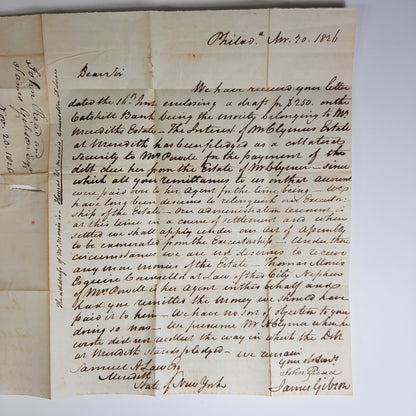 Philad.a Nov. 20. 1826
Dear Sir
We have received your letter
dated the 16th Inst enclosing a draft for $250. on the
Catskill Bank being the moiety belonging to Mr
Merediths Estate – The Interest of Mr Clymers Estate
at Meredith has been pledged as a collateral
Security to Mrs Powele for the payment of the
debt due her from the Estate of Mr Clymer – since
which all your remittances to us on that account
were paid over to her Agent for the time being – We
have long been desirous to relinquish our Executor
Ship of the Estate – Our administration account is
at this time in a course of settlement and when
settled we shall apply under our Act of Assembly
to be exonerated from the Executorship – Under these
circumstances we are not desirous to receive
any more monies of the Estate. Thomas Morris
Esquire Counsellor at Law of this City Nephew
of Mrs Powele is her Agent in this behalf and
had you remitted the money we should have
paid it to him – We have no sort of objection to your
doing so now – We presume Mr H Clymer when he
wrote did not recollect the way in which the Debt
at Meredith stands pledged – we remain
your obed Servts
John Read
James Gibson
Samuel A Law Esqr
Meredith
State of New York
The address of Mr Morris is – Thomas
John Read and
James Gibson Esqr
Nov. 20. 1826